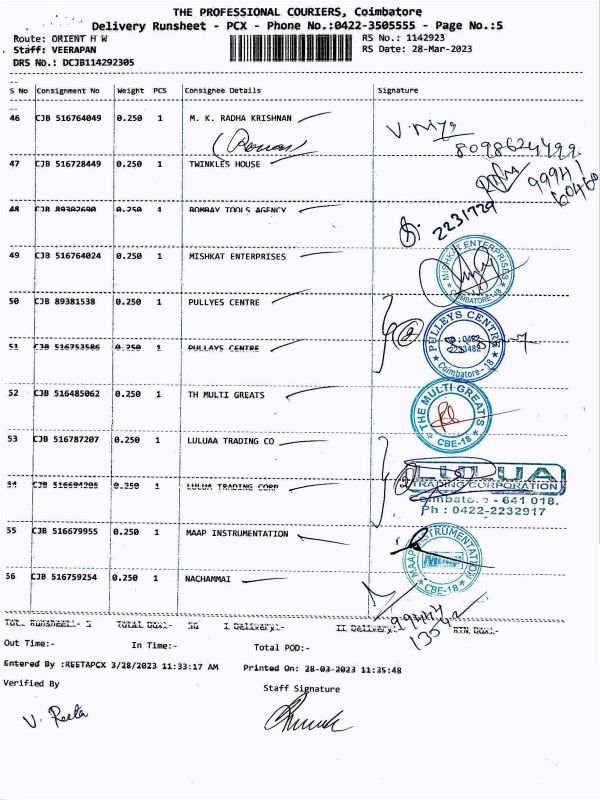 THE PROFESSIONAL COURIERS, Coimbatore
Delivery Runsheet - PCX - Phone No.:0422-3505555 - Page No.:5
Route: ORIENT H W RS No.: 1142923
Staff: VEERAPAN RS Date: 28-Mar-2023
DRS No.: DCJB114292305
S No Consignment No Weight PCS Consignee Details Signature
46 CJB 516764049 0.250 1 M. K. RADHA KRISHNAN
8098624499
47 CJB 516728449 0.250 1 TWINKLES HOUSE
99941
60460
48 CJB 89302690 0.250 1 BOMBAY TOOLS AGENCY
2231729
49 CJB 516764024 0.250 1 MISHKAT ENTERPRISES
MISHKAT ENTERPRISES
COIMBATORE-18
50 CJB 89381538 0.250 1 PULLYES CENTRE
2
PULLEYS CENTRE
Coimbatore - 18
51 CJB 516753586 0.250 1 PULLAYS CENTRE
52 CJB 516485062 0.250 1 TH MULTI GREATS
THE MULTI GREATS
CBE-18
53 CJB 516787207 0.250 1 LULUAA TRADING CO
2
TRADING CORPORATION
Coimbatore - 641 018.
Ph : 0422-2232917
54 0.250 1 LULUA TRADING CORP
55 CJB 516679955 0.250 1 MAAP INSTRUMENTATION
MAAP INSTRUMENTATION
CBE-18
56 CJB 516759254 0.250 1 NACHAMMAI
Tot. Runsheet:- Total Dox:- I Delivery:- II Delivery:- RTN Dox:-
Out Time:- In Time:- Total POD:-
Entered By :REETAPCX 3/28/2023 11:33:17 AM Printed On: 28-03-2023 11:35:48
Verified By
Staff Signature
V. Reeta